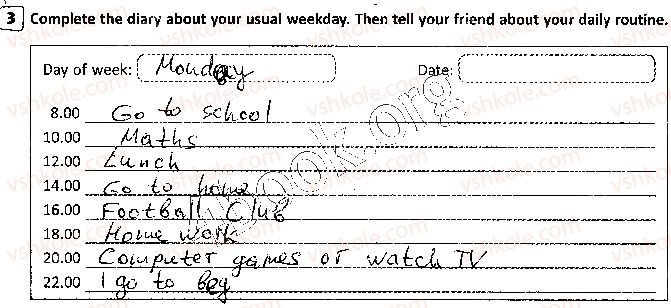 3 Complete the diary about your usual weekday. Then tell your friend about your daily routine.
Day of week: Monday Date:
8.00 Go to school
10.00 Maths
12.00 Lunch
14.00 Go to home
16.00 Football Club
18.00 Home work
20.00 Computer games or watch TV
22.00 I go to bey